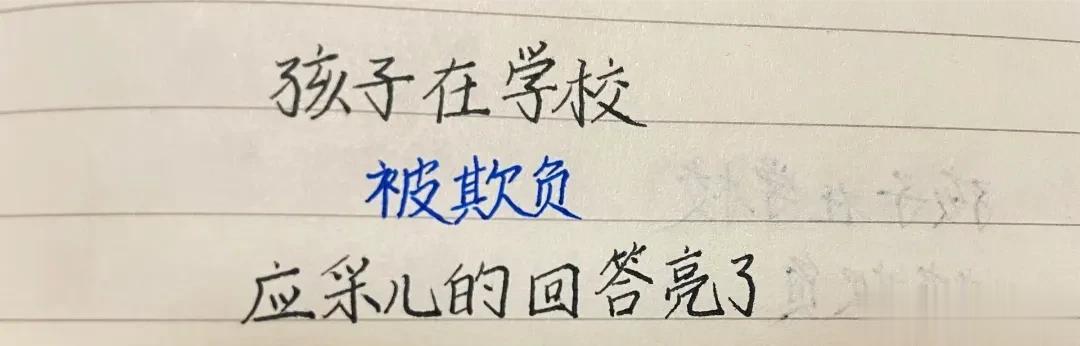 孩子在学校
被欺负
应采儿的回答亮了